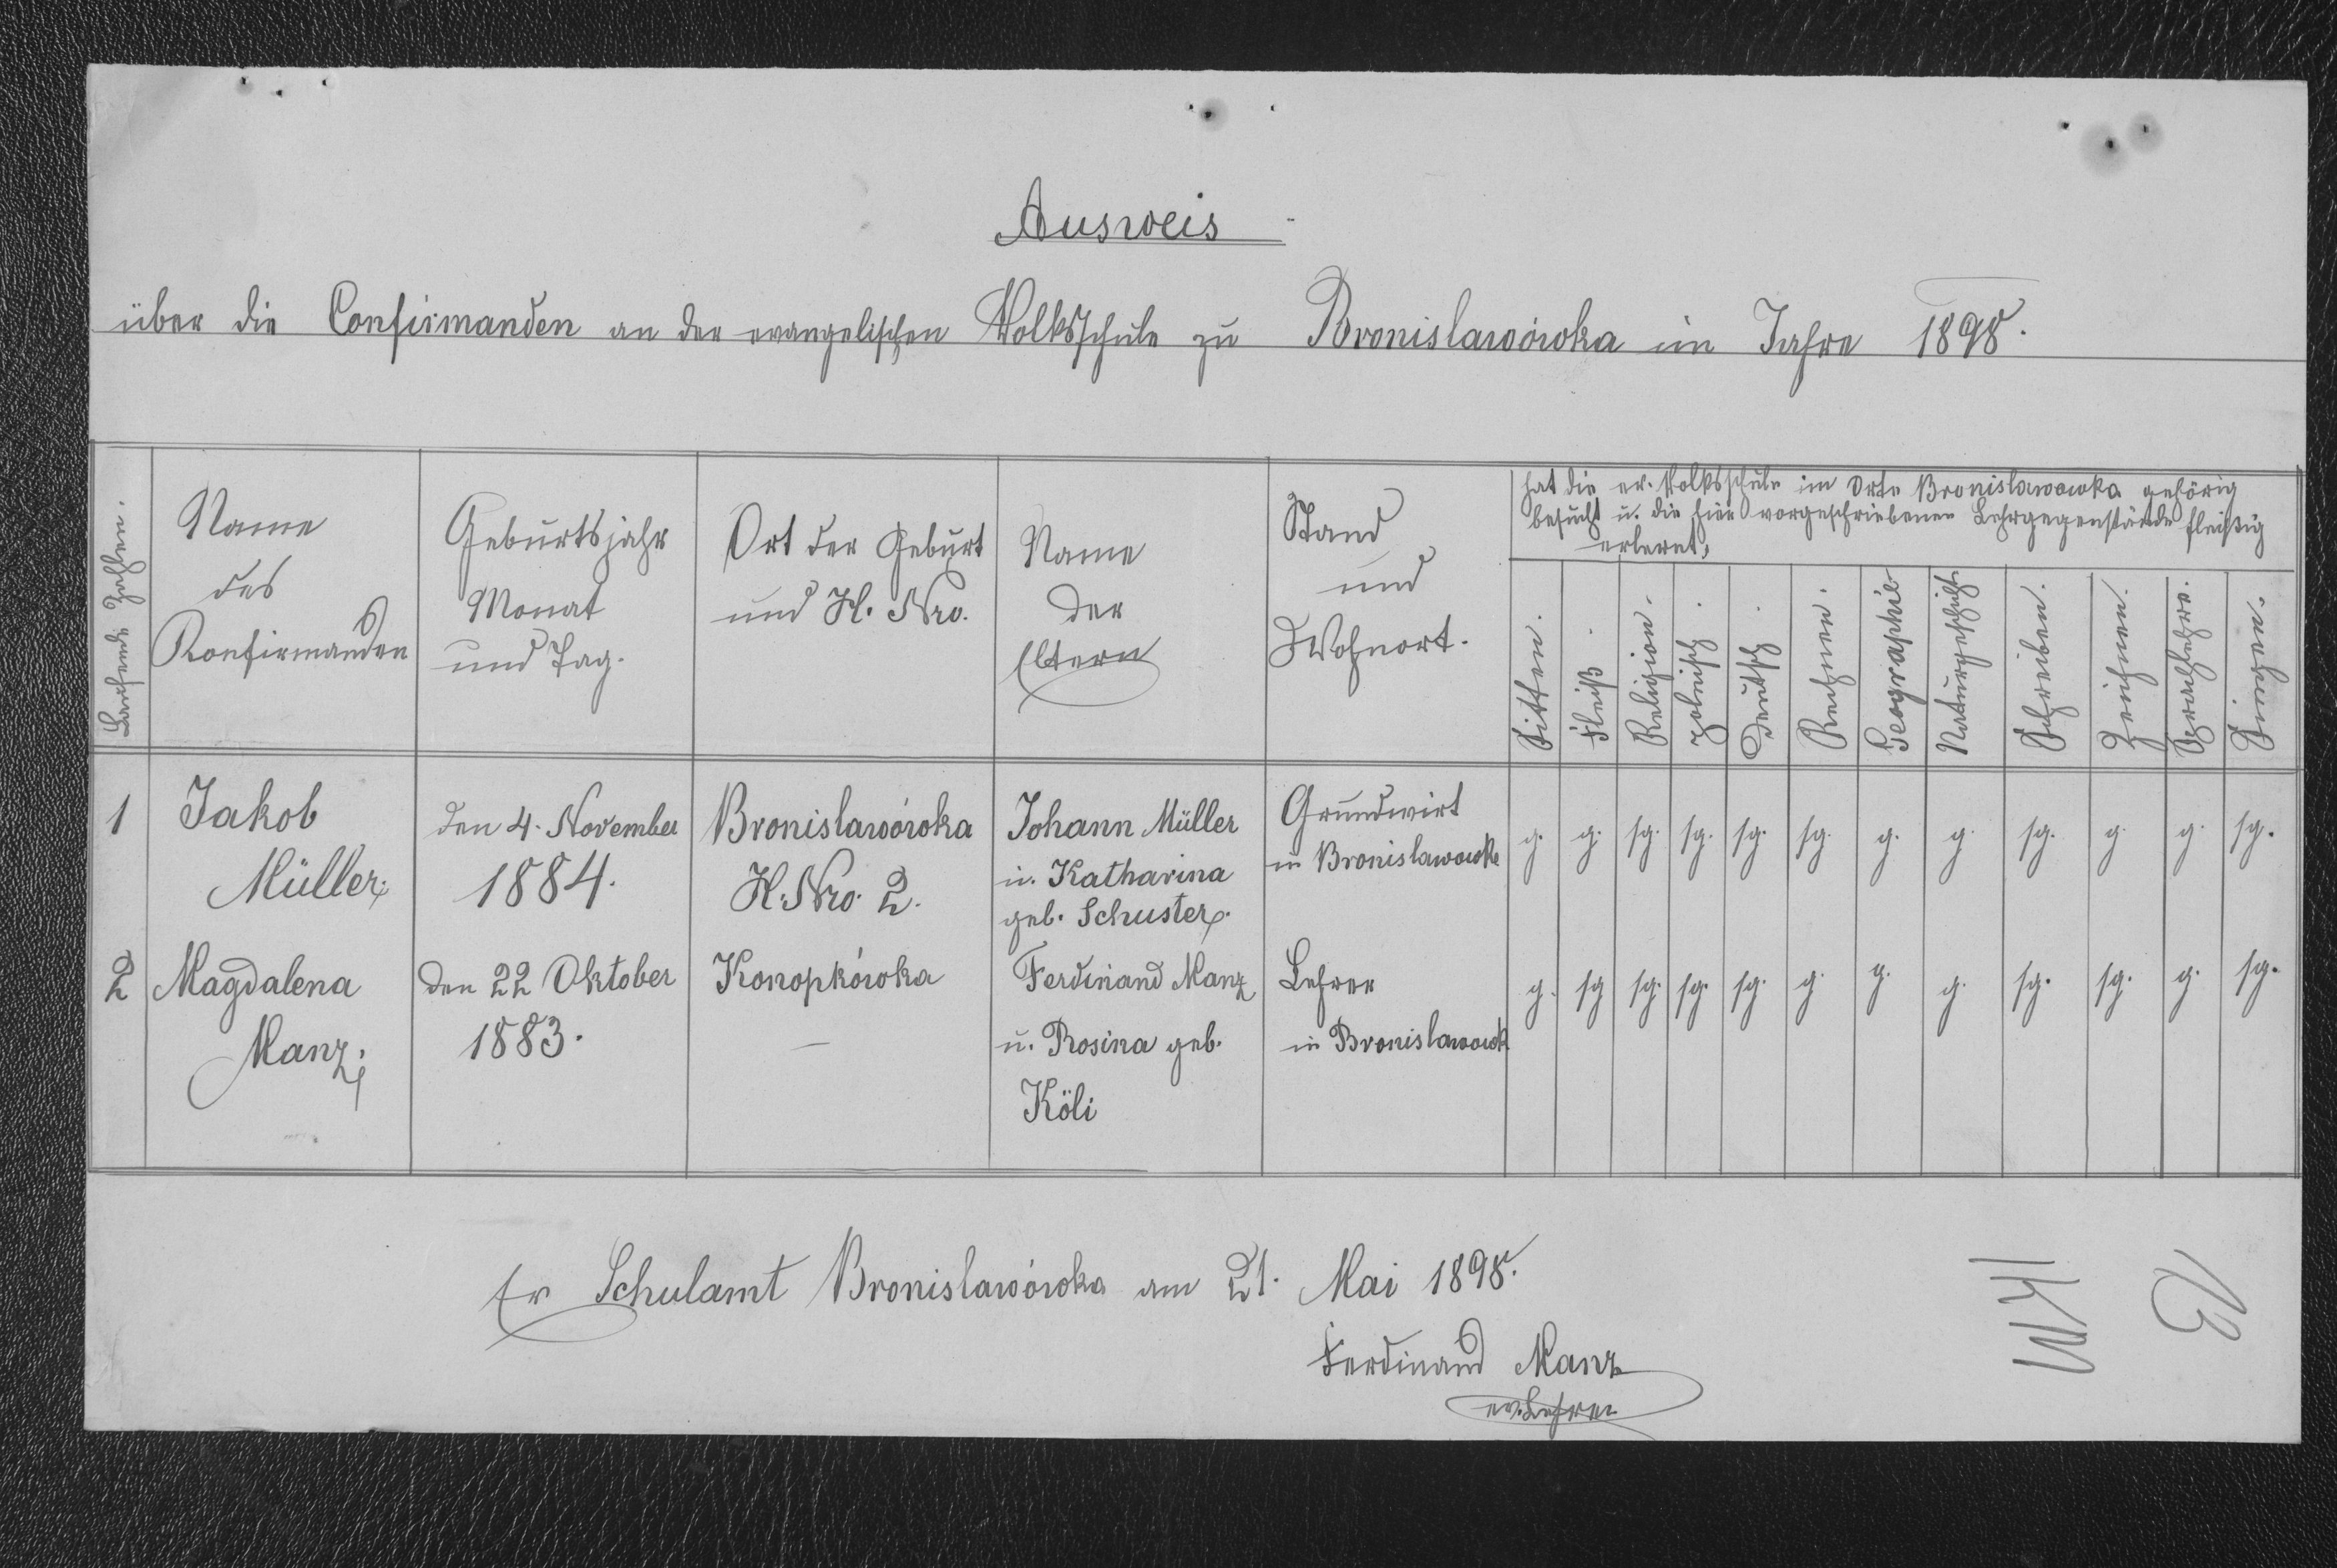 Ausweis
über die Confirmanden an der evangelischen Volksschule zu Bronislawówka im Jahre 1898.
Laufende Zahlen.
Name
des
Konfirmanden
Geburtsjahr
Monat
und Tag.
Ort der Geburt
und H. Nro.
Name
der
Eltern
Stand
und
Wohnort.
hat die ev. Volksschule im Orte Bronislawowka gehörig
besucht u. die hier vorgeschriebenen Lehrgegenstände fleißig
erlernt,
Sitten.
Fleiß.
Religion.
polnisch.
Deutsch.
Rechnen.
Geographie
Naturgeschichte
Schreiben.
Zeichnen.
Sprachlehre.
Singen.
1
Jakob
Müller.
den 4. November
1884.
Bronislawówka
H. Nro. 2.
Johann Müller
u. Katharina
geb. Schuster.
Grundwirt
in Bronislawowka
g. g. sg. sg. sg. sg. g. g. sg. g. g. sg.
2
Magdalena
Manz.
den 22 Oktober
1883.
Konopkówka
—
Ferdinand Manz
u. Rosina geb.
Köli
Lehrer
in Bronislawowk
g. sg sg. sg. sg. g. g. g. sg. sg. g. sg.
Ev Schulamt Bronislawówka am 21. Mai 1898.
Ferdinand Manz
ev. Lehrer
13